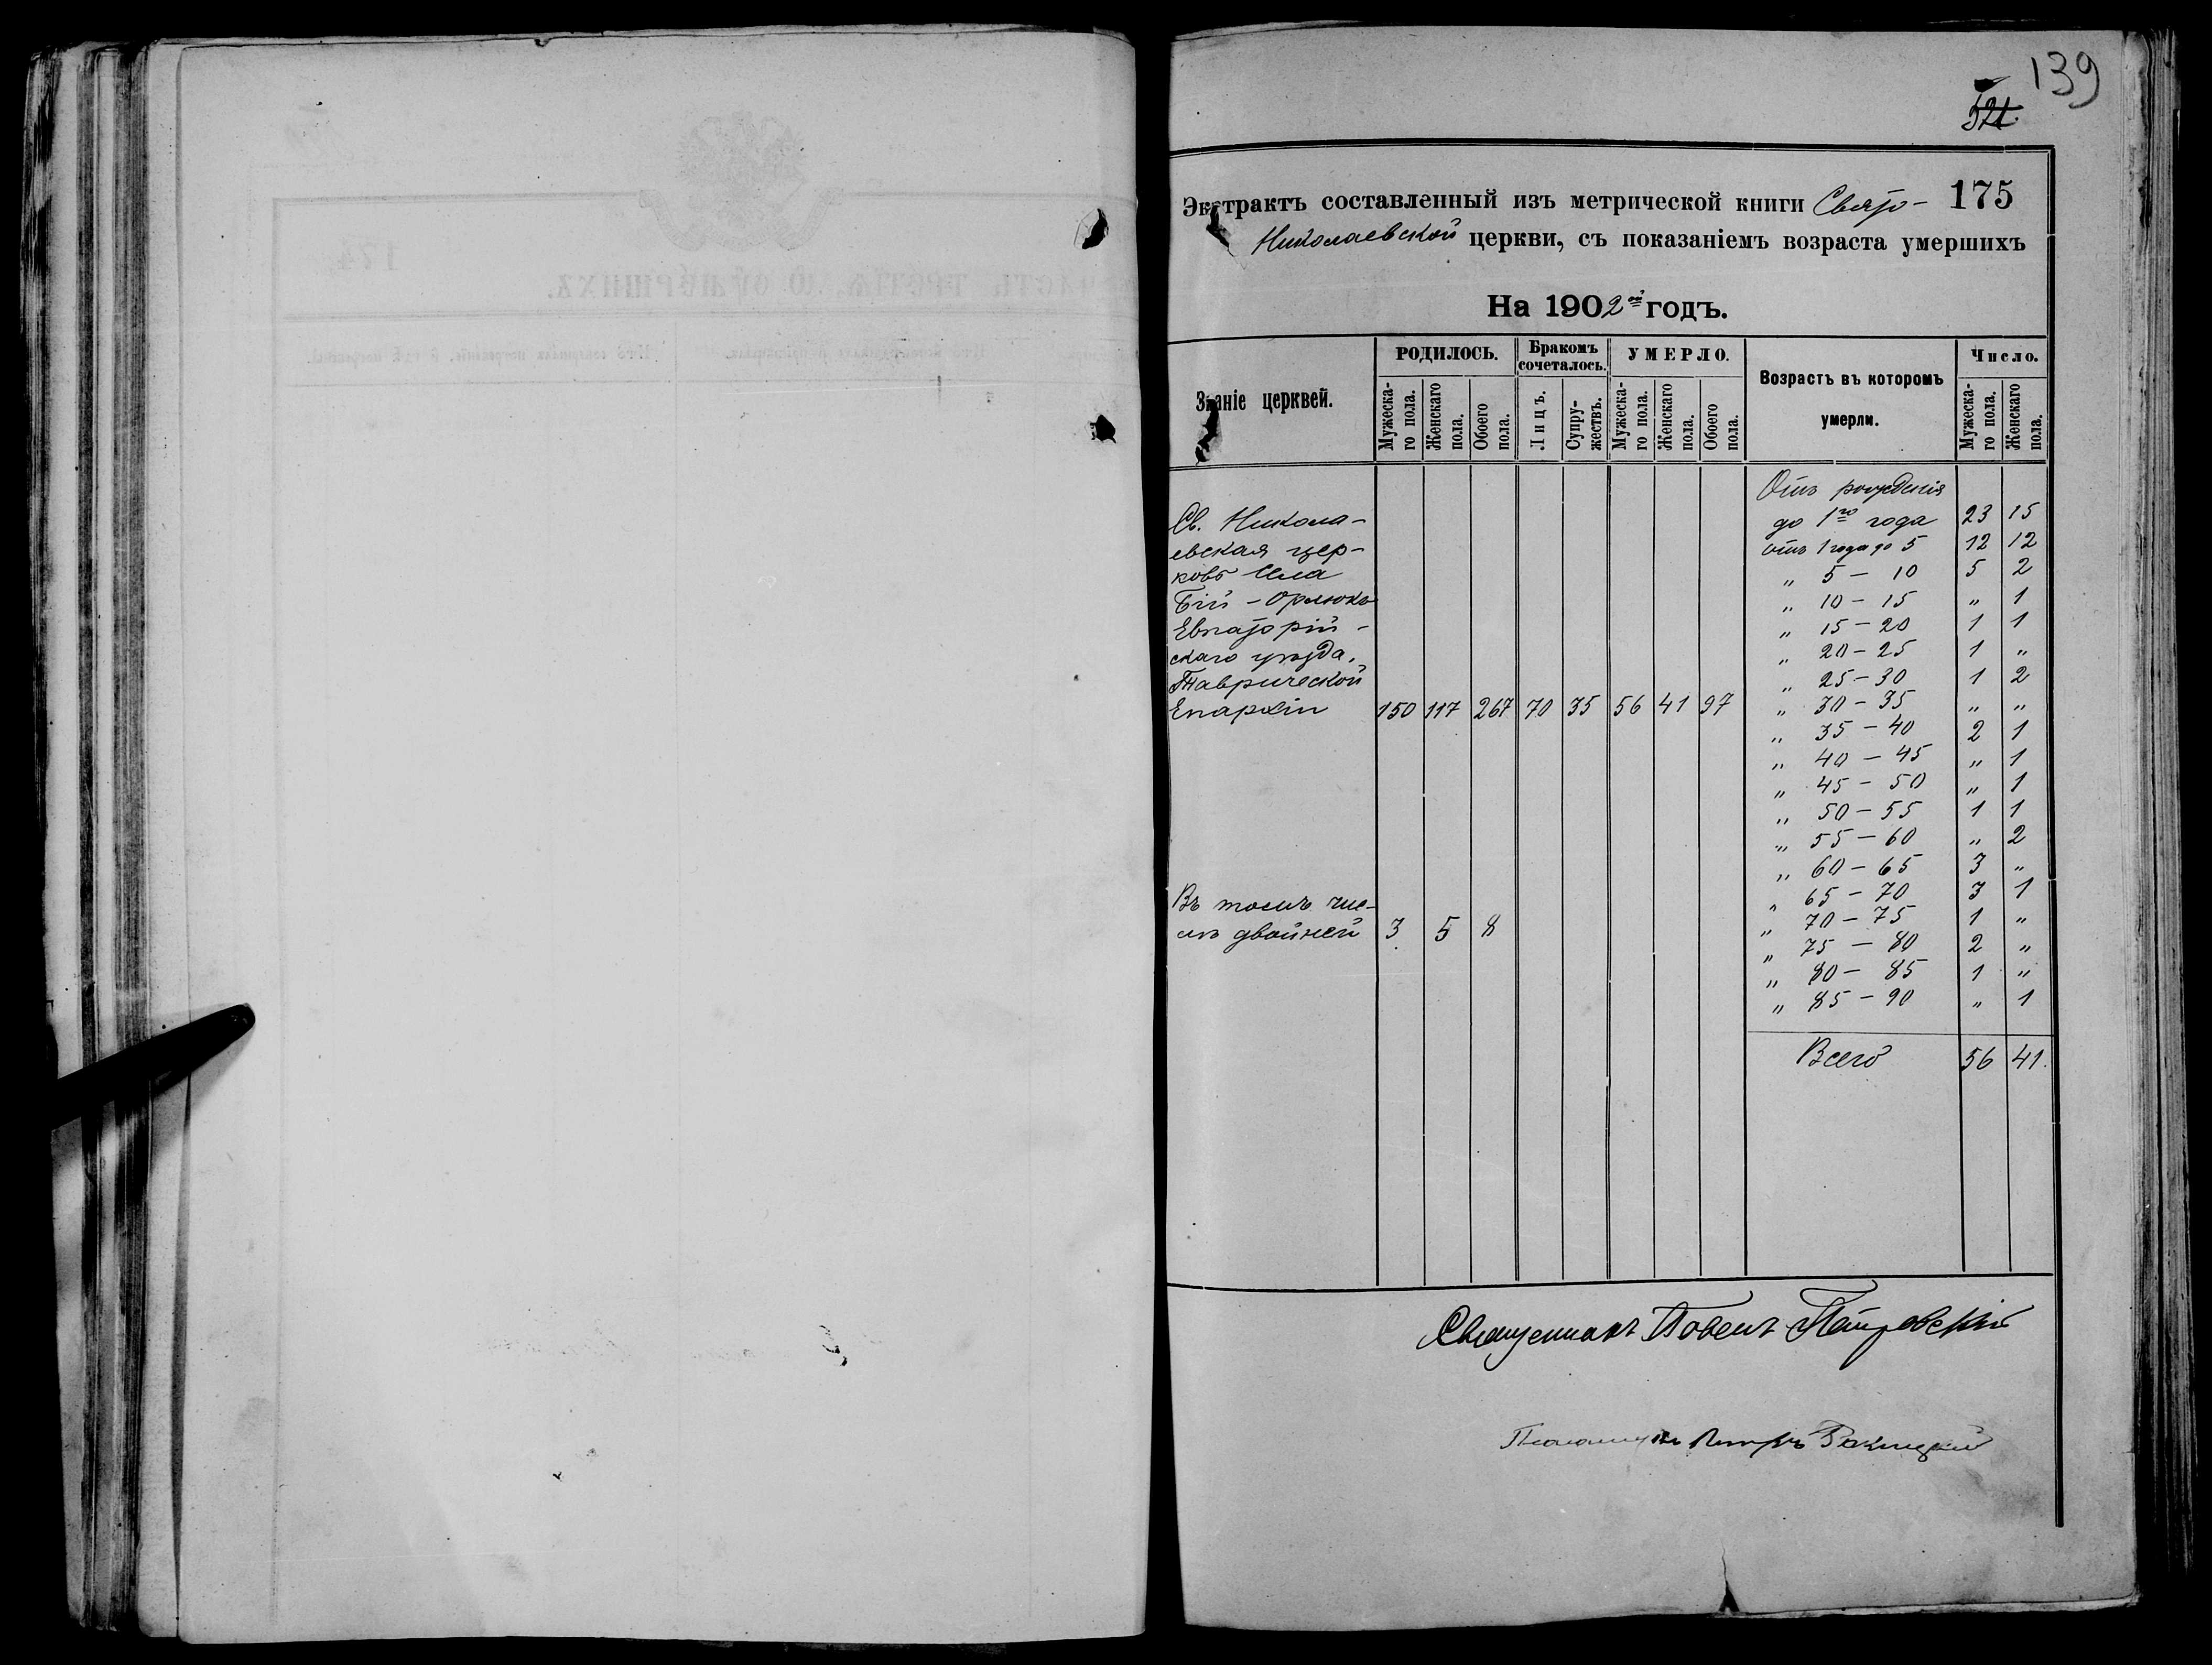 139
521.
175
Экстрактъ составленный изъ метрической книги Свято-
Николаевской церкви, съ показаніемъ возраста умершихъ
На 1902й годъ.
Званіе церквей.
РОДИЛОСЬ.
Бракомъ сочеталось.
УМЕРЛО.
Возрастъ въ которомъ умерли.
Число.
Мужескаго пола.
Женскаго пола.
Обоего пола.
Лицъ.
Супружествъ.
Мужеска-го пола.
Женскаго пола.
Обоего пола.
Мужеска-го пола.
Женскаго пола.
Св. Никола-
евская цер-
ковь села
Бій-Орлюкъ
Евпаторій-
скаго уѣзда,
Таврической
Епархіи 150 117 267 70 35 56 41 97
Въ томъ чис-
лѣ двойней 3 5 8
Отъ рожденія
до 1го года 23 15
отъ 1 года до 5 12 12
„ 5 – 10 5 2
„ 10 – 15 „ 1
„ 15 – 20 1 1
„ 20 – 25 1 „
„ 25 – 30 1 2
„ 30 – 35 „ „
„ 35 – 40 2 1
„ 40 – 45 „ 1
„ 45 – 50 „ 1
„ 50 – 55 1 1
„ 55 – 60 „ 2
„ 60 – 65 3 „
„ 65 – 70 3 1
„ 70 – 75 1 „
„ 75 – 80 2 „
„ 80 – 85 1 „
„ 85 – 90 „ 1
Всего 56 41.
Священникъ Павелъ Петровскій
Псаломщикъ Петръ